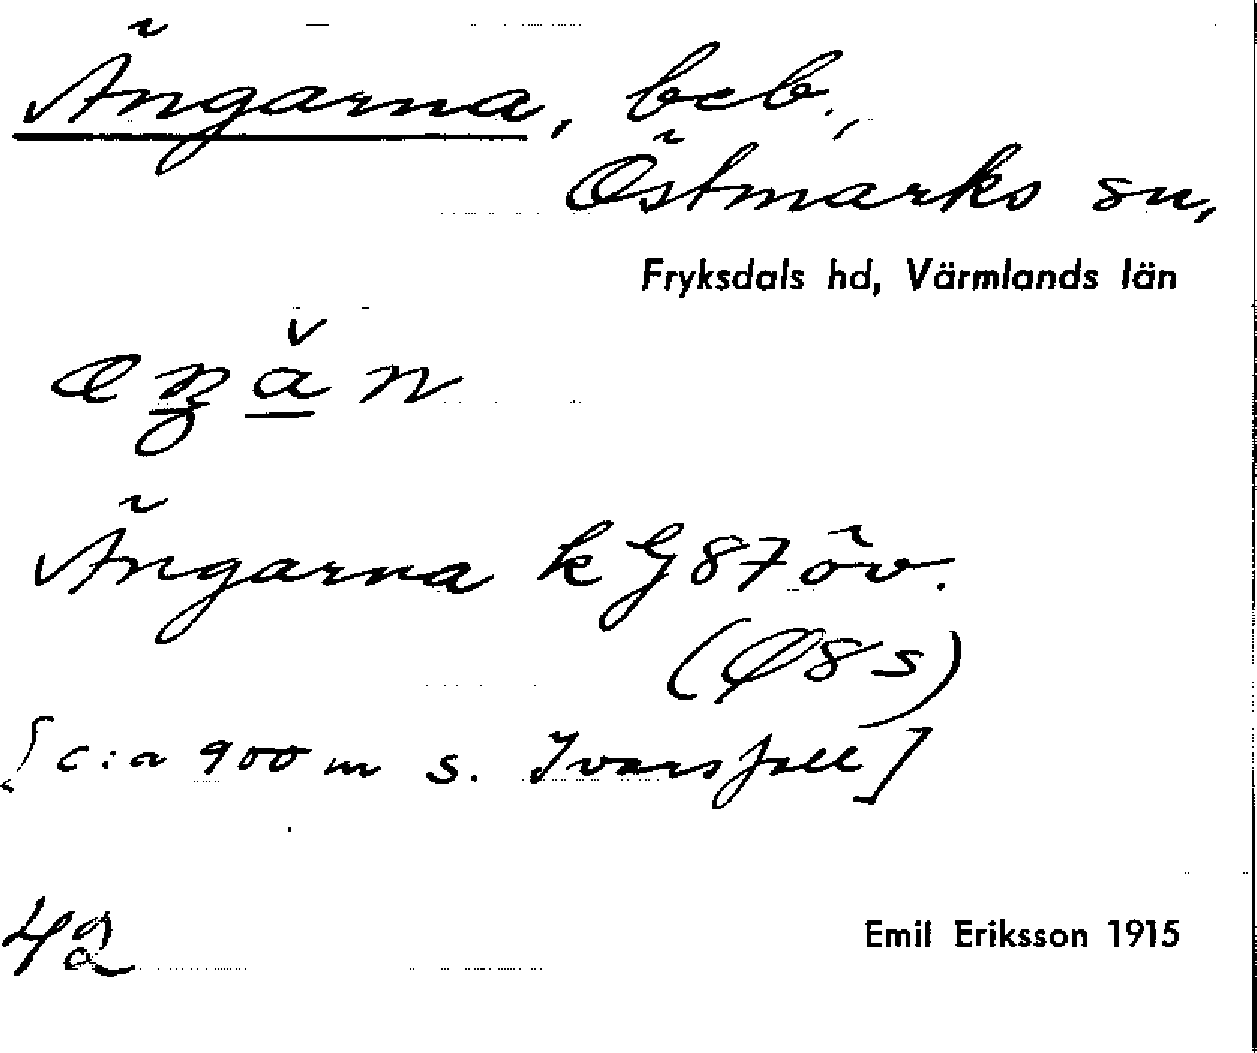 Ängarna, beb.,
Östmarks sn,
Fryksdals hd, Värmlands län
Ängarna k G 87 öv.
(Ø 8 s)
[c:a 900 m s. Ivarsfall]
42
Emil Eriksson 1915